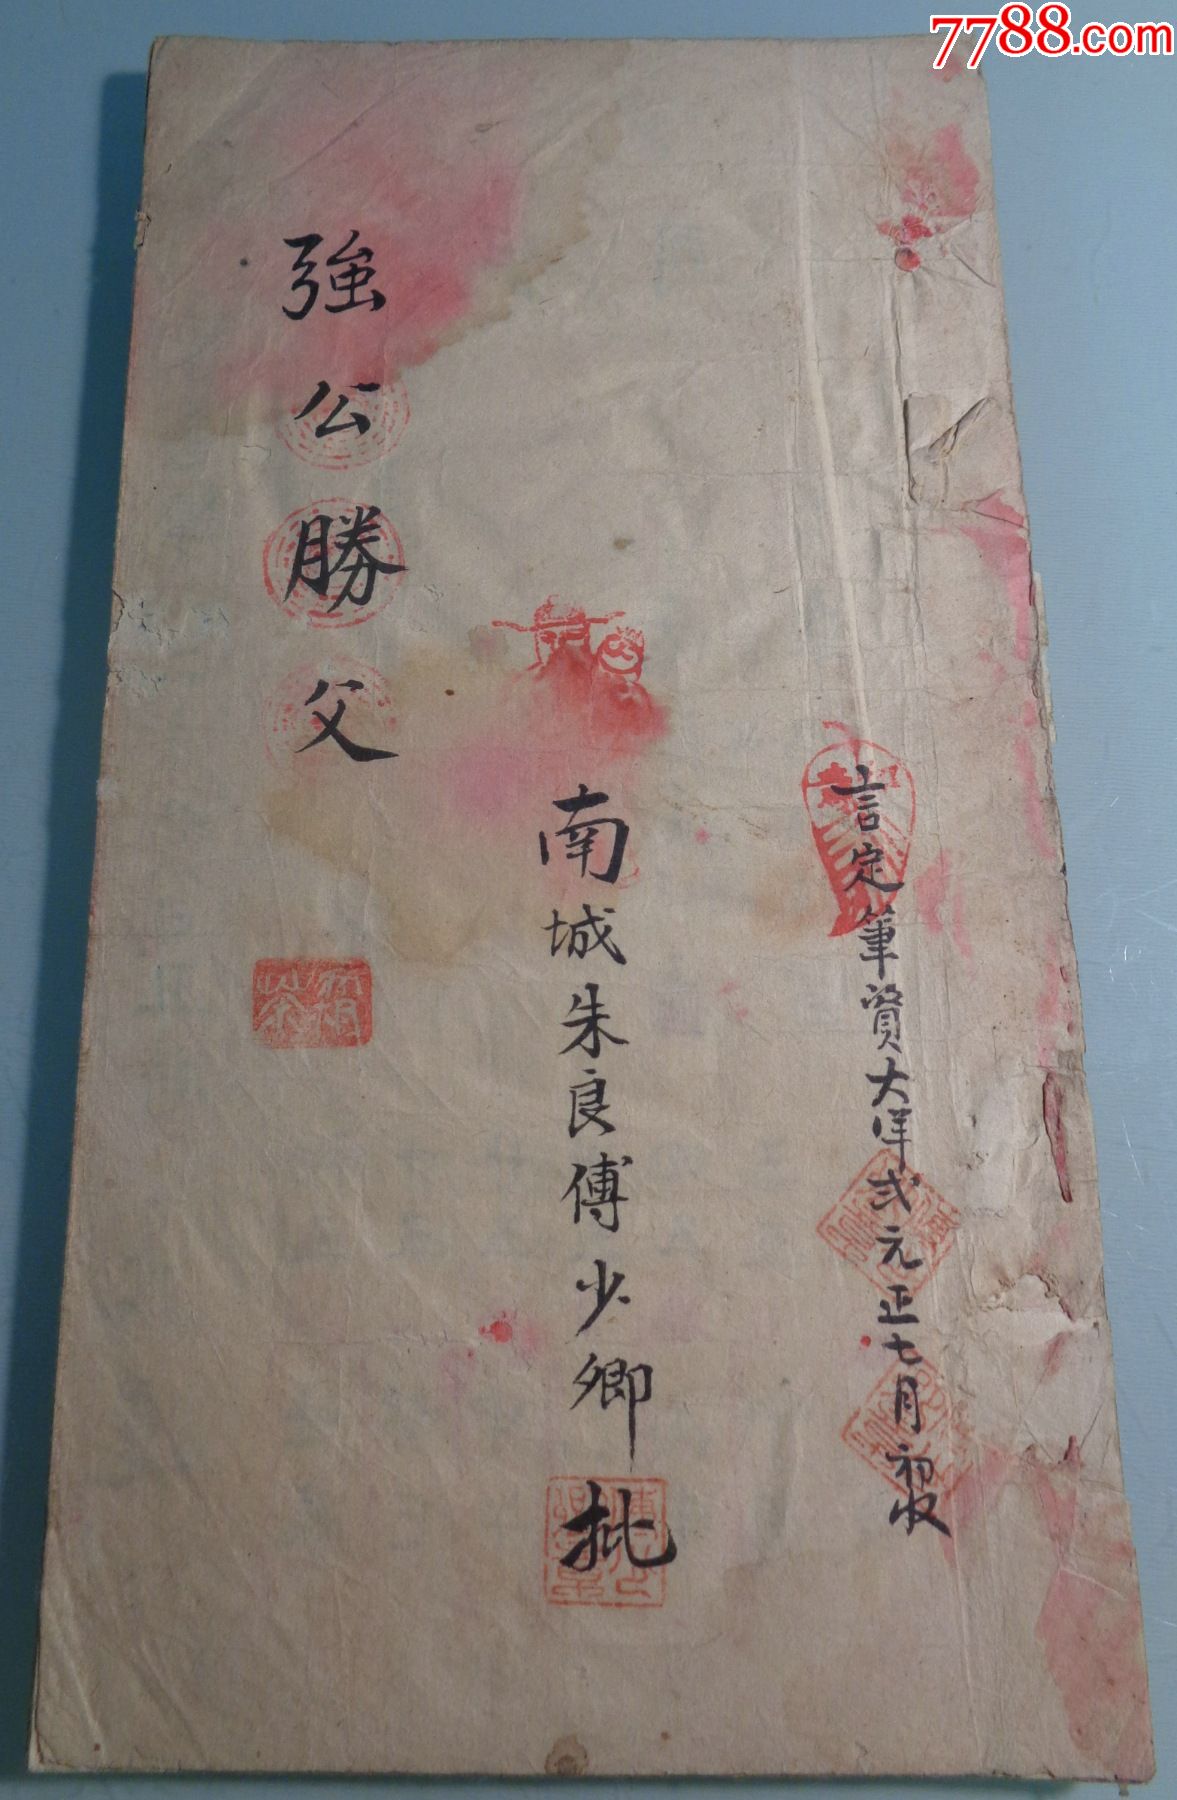 7788.com
言定筆資大洋弍元正七月初收
南城朱良傅少卿批
強公勝父